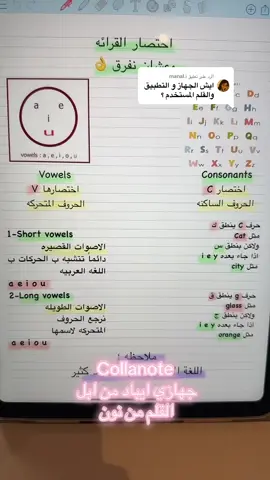 اختصار القرائه
عشان نفرق 👌
الرد على تعليق manal
ايش الجهاز و التطبيق
والقلم المستخدم ؟
a e
i
u
vowels : a,e,i,o,u
Dd
Ee Ff Gg Hh
Ii Jj Kk Ll Mm
Nn Oo Pp Qq
Rr Ss Tt Uu Vv
Ww Xx Yy Zz
Vowels
اختصارها V
الحروف المتحركه
Consonants
اختصار C
الحروف الساكنه
1-Short vowels
الاصوات القصيره
دائما نتشبه ب الحركات ب
اللغه العربيه
a e i o u
2-Long vowels
الاصوات الطويله
ترجع الحروف
المتحركه لاسمها
a e i o u
حرف c ينطق ك
مثل Cat
ولاكن ينطق س
اذا جاء بعده i e y
مثل city
حرف g ينطق ق
مثل glass
ولاكن ينطق ج
اذا جاء بعده i e y
مثل orange
ملاحظه :
اللغة
كثير
Collanote
جهازي ايباد من ابل
القلم من نون